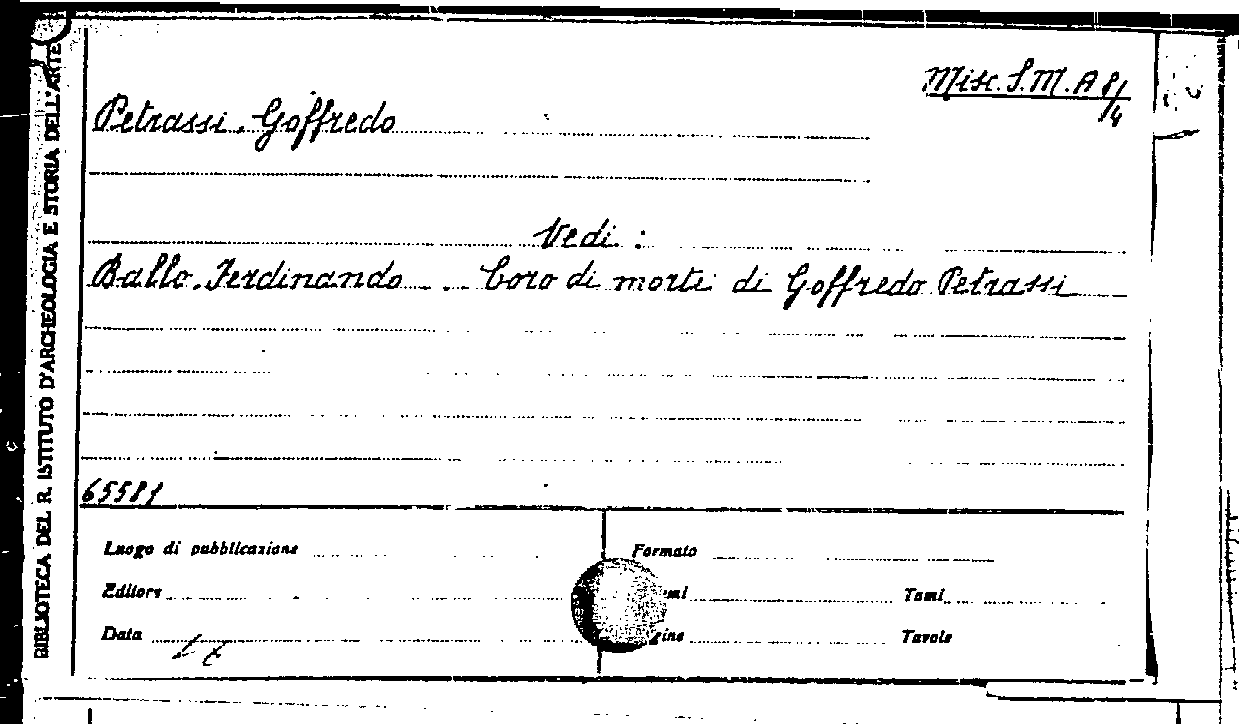 BIBLIOTECA DEL R. ISTITUTO D'ARCHEOLOGIA E STORIA DELL'ARTE
Misc. S.M. A 8/4
Petrassi, Goffredo
Vedi :
Ballo, Ferdinando - Coro di morti di Goffredo Petrassi
65581
Luogo di pubblicazione
Formato
Editore
Tomi
Data
Tavole